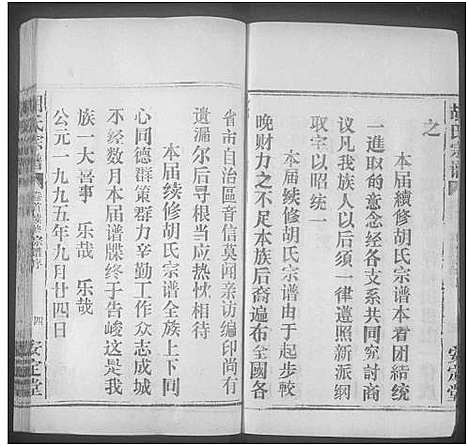 之
本届續修胡氏宗谱本着团結统
一進取的意念经各支系共同究討商
议凡我族人以后须一律遵照新派綱
取字以昭统一
本届续修胡氏宗谱由于起步較
晚财力之不足本族后裔遍布全國各
省市自治區音信莫闻亲访编印尚有
遗漏尔后寻根当应热忱相待
本届续修胡氏宗谱全族上下同
心同德群策群力辛勤工作众志成城
不经数月本届谱牒终于告峻这是我
族一大喜事 乐哉 乐哉
公元一九九五年九月廿四日
胡氏宗谱
四
安定堂
胡氏宗谱
安定堂